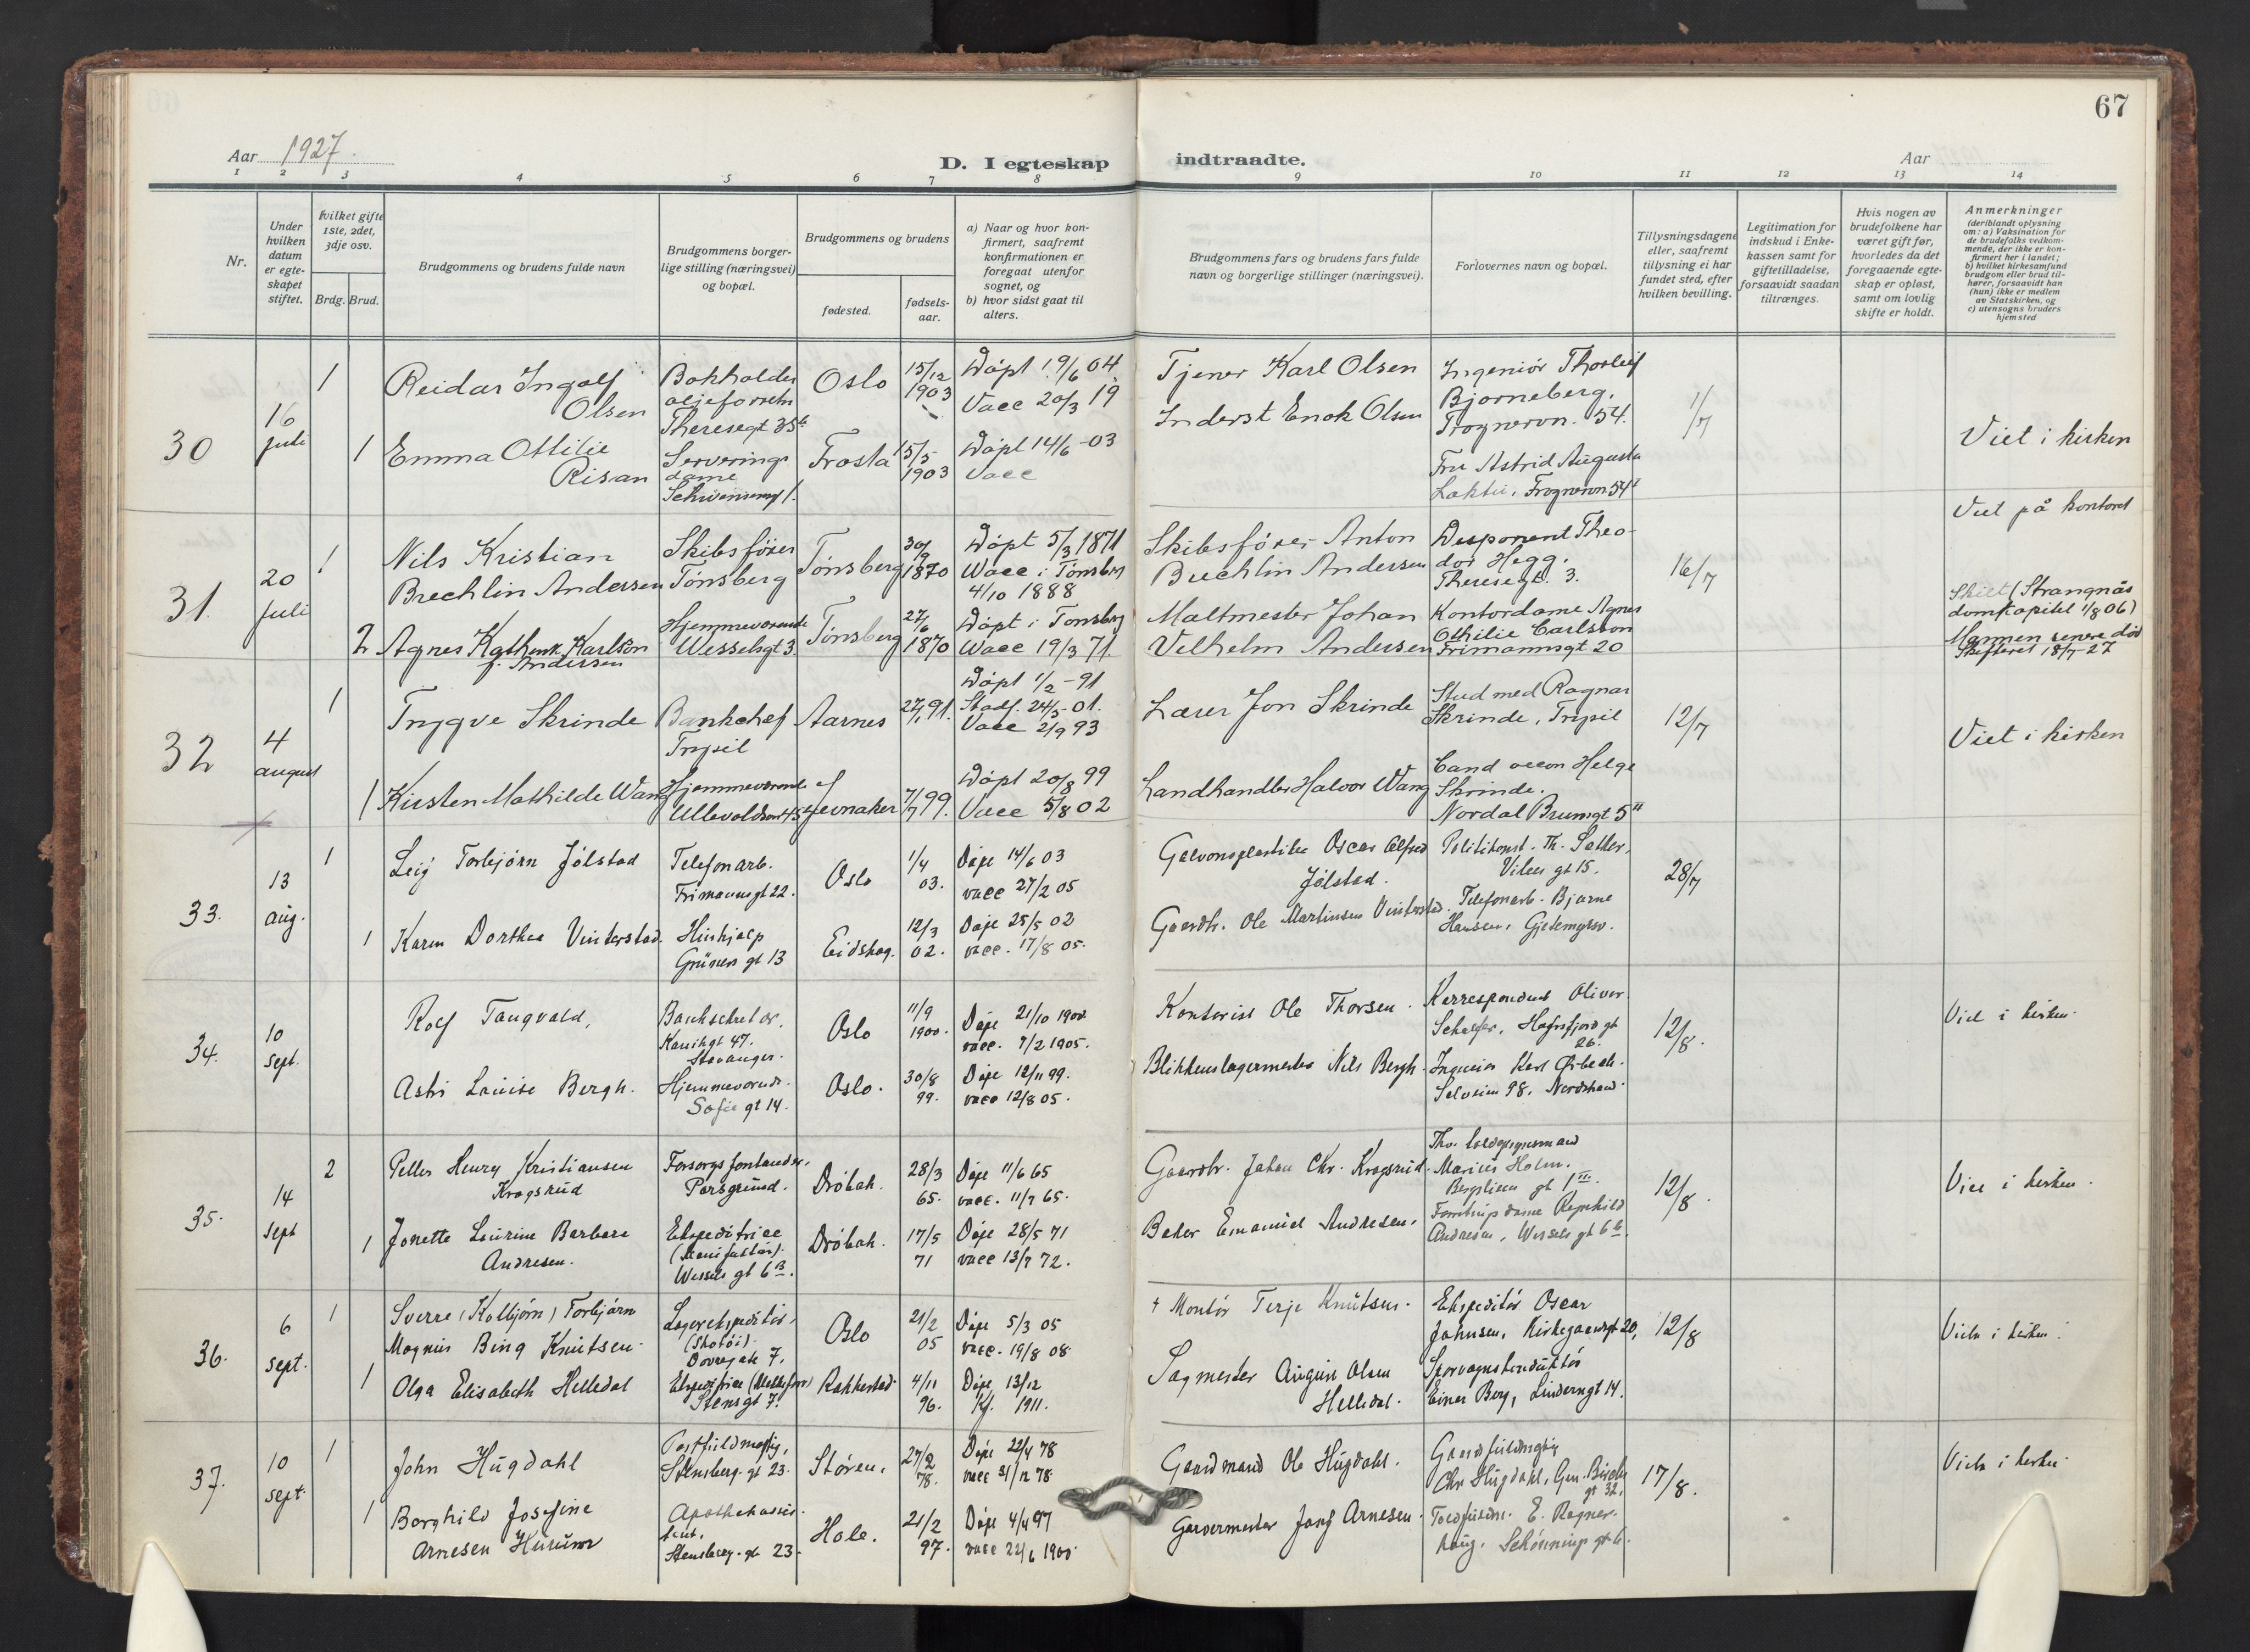 67
Aar 1927.
D. I egteskap indtraadte.
Aar
1 2 3 4 5 6 7 8 9 10 11 12 13 14
Nr.
Under hvilken datum er egteskapet stiftet.
hvilket gifte 1ste, 2det, 3dje osv.
Brdg. Brud.
Brudgommens og brudens fulde navn
Brudgommens borgerlige stilling (næringsvei) og bopæl.
Brudgommens og brudens
fødested.
fødselsaar.
a) Naar og hvor konfirmert, saafremt konfirmationen er foregaat utenfor sognet, og
b) hvor sidst gaat til alters.
Brudgommens fars og brudens fars fulde navn og borgerlige stillinger (næringsvei).
Forlovernes navn og bopæl.
Tillysningsdagene eller, saafremt tillysning ei har fundet sted, efter hvilken bevilling.
Legitimation for indskud i Enkekassen samt for giftetilladelse, forsaavidt saadan tiltrænges.
Hvis nogen av brudefolkene har været gift før, hvorledes da det foregaaende egteskap er opløst, samt om lovlig skifte er holdt.
Anmerkninger
(deriblandt oplysning om: a) Vaksination for de brudefolks vedkommende, der ikke er konfirmert her i landet;
b) hvilket kirkesamfund brudgom eller brud tilhører, forsaavidt han (hun) ikke er medlem av Statskirken, og
c) utensogns bruders hjemsted
30
16
juli
1
Reidar Ingolf
Olsen
Bokholder
oljeforretn
Theresegt 35b
Oslo
15/12
1903
Døpt 19/6 04
Vacc 20/3 19
Tjener Karl Olsen
Ingeniør Thorleif
Bjorneberg,
Frognervn. 54.
1/7
1
Emma Ottilie
Risan
Serverings
dame
Frosta
15/5
1903
Døpt 14/6-03
Vacc
Inderst Enok Olsen
Fru Astrid Augusta
Frognervn 54
Viet i kirken
31.
20
Juli
1
Nils Kristian
Brechlin Andersen
Skibsfører
Tønsberg
Tønsberg
30/9
1870
Døpt 5/3 1871
Vacc i Tønsberg
4/10 1888
Skibsfører Anton
Brechlin Andersen
Disponent Theo-
dor Hegg.
Theresegt. 3.
16/7
Viet på kontoret
2
Agnes Kathink. Karlson
f. Andersen
Hjemmeværende
Wesselsgt 3
Tønsberg
27/6
1870
Døpt i Tønsberg
Vacc 19/3 71.
Maltmester Johan
Vilhelm Andersen
Kontordame Agnes
Othilie Carlsson
Frimannsgt 20
Skilt (Strangnäs
domkapitel 1/8 06)
Mannen senere død
Skifteret 18/7-27
32
4
august
1
Trygve Skrinde
Bankchef
Trysil
Aarnes
27/1 91.
Døpt 1/2-91
Stadf. 24/3-01.
Vacc 2/9 93
Lærer Jon Skrinde
Stud med Ragnar
Skrinde, Trysil
12/7
Viet i kirken
1
Kirsten Mathilde Wang
Hjemmeværende
Ullevoldsvn 45
Jevnaker
7/7 99.
Døpt 20/8 99
Vacc 5/8 02
Landhandler Halvor Wang
Cand oecon Helge
Skrinde.
Nordal Brunsgt 5 II
33.
13
aug.
1
Leif Torbjørn Jølstad
Telefonarb.
Frimannsgt 22.
Oslo
1/4
03.
Døpt 14/6 03
vacc 27/2 05
Galvanoplastiker Oscar Alfred
Jølstad.
Politikonst. Th. Sather,
Vibes gt 15.
28/7
1
Karen Dorthea Vinterstad.
Hushjælp
Grüners gt 13
Eidskog.
12/3
02.
Døpt 25/5 02
vacc. 17/8 05.
Gaardbr. Ole Martinsen Vinterstad.
Telefonarb. Bjarne
Hansen, Gjetemyrsv.
34.
10
sept.
Rolf Tangvald,
Banksekretær,
Kanikgt 47.
Stavanger.
Oslo
11/9
1900.
Døpt 21/10 1900.
vacc. 7/2 1905.
Kontorist Ole Thorsen.
Korrespondent Oliver
Schæfer, Hafrsfjord gt
26.
12/8.
Viet i kirken.
Astri Louise Bergh.
Hjemmeværende.
Sofies gt 14.
Oslo.
30/8
99.
Døpt 12/11 99.
vacc 12/8 05.
Blikkenslagermester Nils Bergh.
Ingeniør Karl Ørbech.
Solveien 98. Nordstrand.
35.
14
sept
2
Petter Henry Kristiansen
Krogsrud
Forsorgsforstander,
Porsgrund.
Drøbak.
28/3
65.
Døpt 11/6 65
vacc. 11/7 65.
Gaardbr. Johan Chr. Krogsrud.
Marius Holm.
Bergslien gt 1 III.
12/8.
Viet i kirken.
1
Jonette Laurine Barbara
Andresen.
Ekspeditrice
(Manufaktur).
Wessels gt 6 B.
Drøbak.
17/5
71
Døpt 28/5 71
vacc 13/7 72.
Baker Emanuel Andresen.
Andresen, Wessels gt 6 b.
36.
6
sept.
1
Sverre (Kolbjørn) Torbjørn
Magnus Bing Knutsen.
Lagerekspeditør,
(Skotøi).
Dovregate 7.
Oslo
21/2
05
Døpt 5/3 05
vacc. 19/8 08.
† Montør Terje Knutsen.
Ekspeditør Oscar
Johnsen, Kirkegaardsgt 20,
12/8
Viet i kirken.
1
Olga Elisabeth Helledal
Stensgt 7.
Rakkestad
4/11
96.
Døpt 13/12
Kf. 1911.
Sagmester August Olsen
Helledal.
Sporvognskonduktør
Einar Berg, Lindern gt 14.
37.
10
sept.
1
John Hugdahl
Postfuldmægtig,
Stensberg. gt 23.
Støren.
27/2
78.
Døpt 22/4 78
vacc 31/12 78
Gaardmand Ole Hugdahl.
Chr Hugdahl, Gen. Birch
gt 32,
17/8.
Viet i kirken.
1
Borghild Josefine
Arnesen Hurum
Stensberg. gt 23.
Hole.
21/2
97.
Døpt 4/4 97
vacc 22/6 1900.
Garvermester Josef Arnesen.